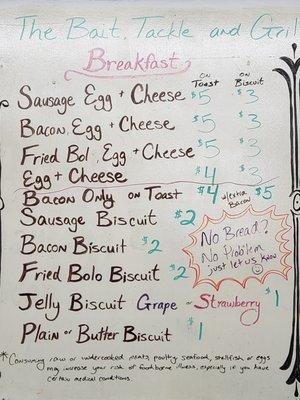 The Bait, Tackle and Gril
Breakfast
on Toast on Biscuit
Sausage Egg + Cheese $5 $3
Bacon, Egg + Cheese $5 $3
Fried Bol, Egg + Cheese $5 $3
Egg + Cheese $4 $3
Bacon Only on Toast $4 w/extra Bacon $5
Sausage Biscuit $2
Bacon Biscuit $2
Fried Bolo Biscuit $2
No Bread?
No Problem
just let us know
Jelly Biscuit Grape or Strawberry $1
Plain or Butter Biscuit $1
* Consuming raw or undercooked meats, poultry, seafood, shellfish or eggs
may increase your risk of foodborne illness, especially if you have
certain medical conditions.